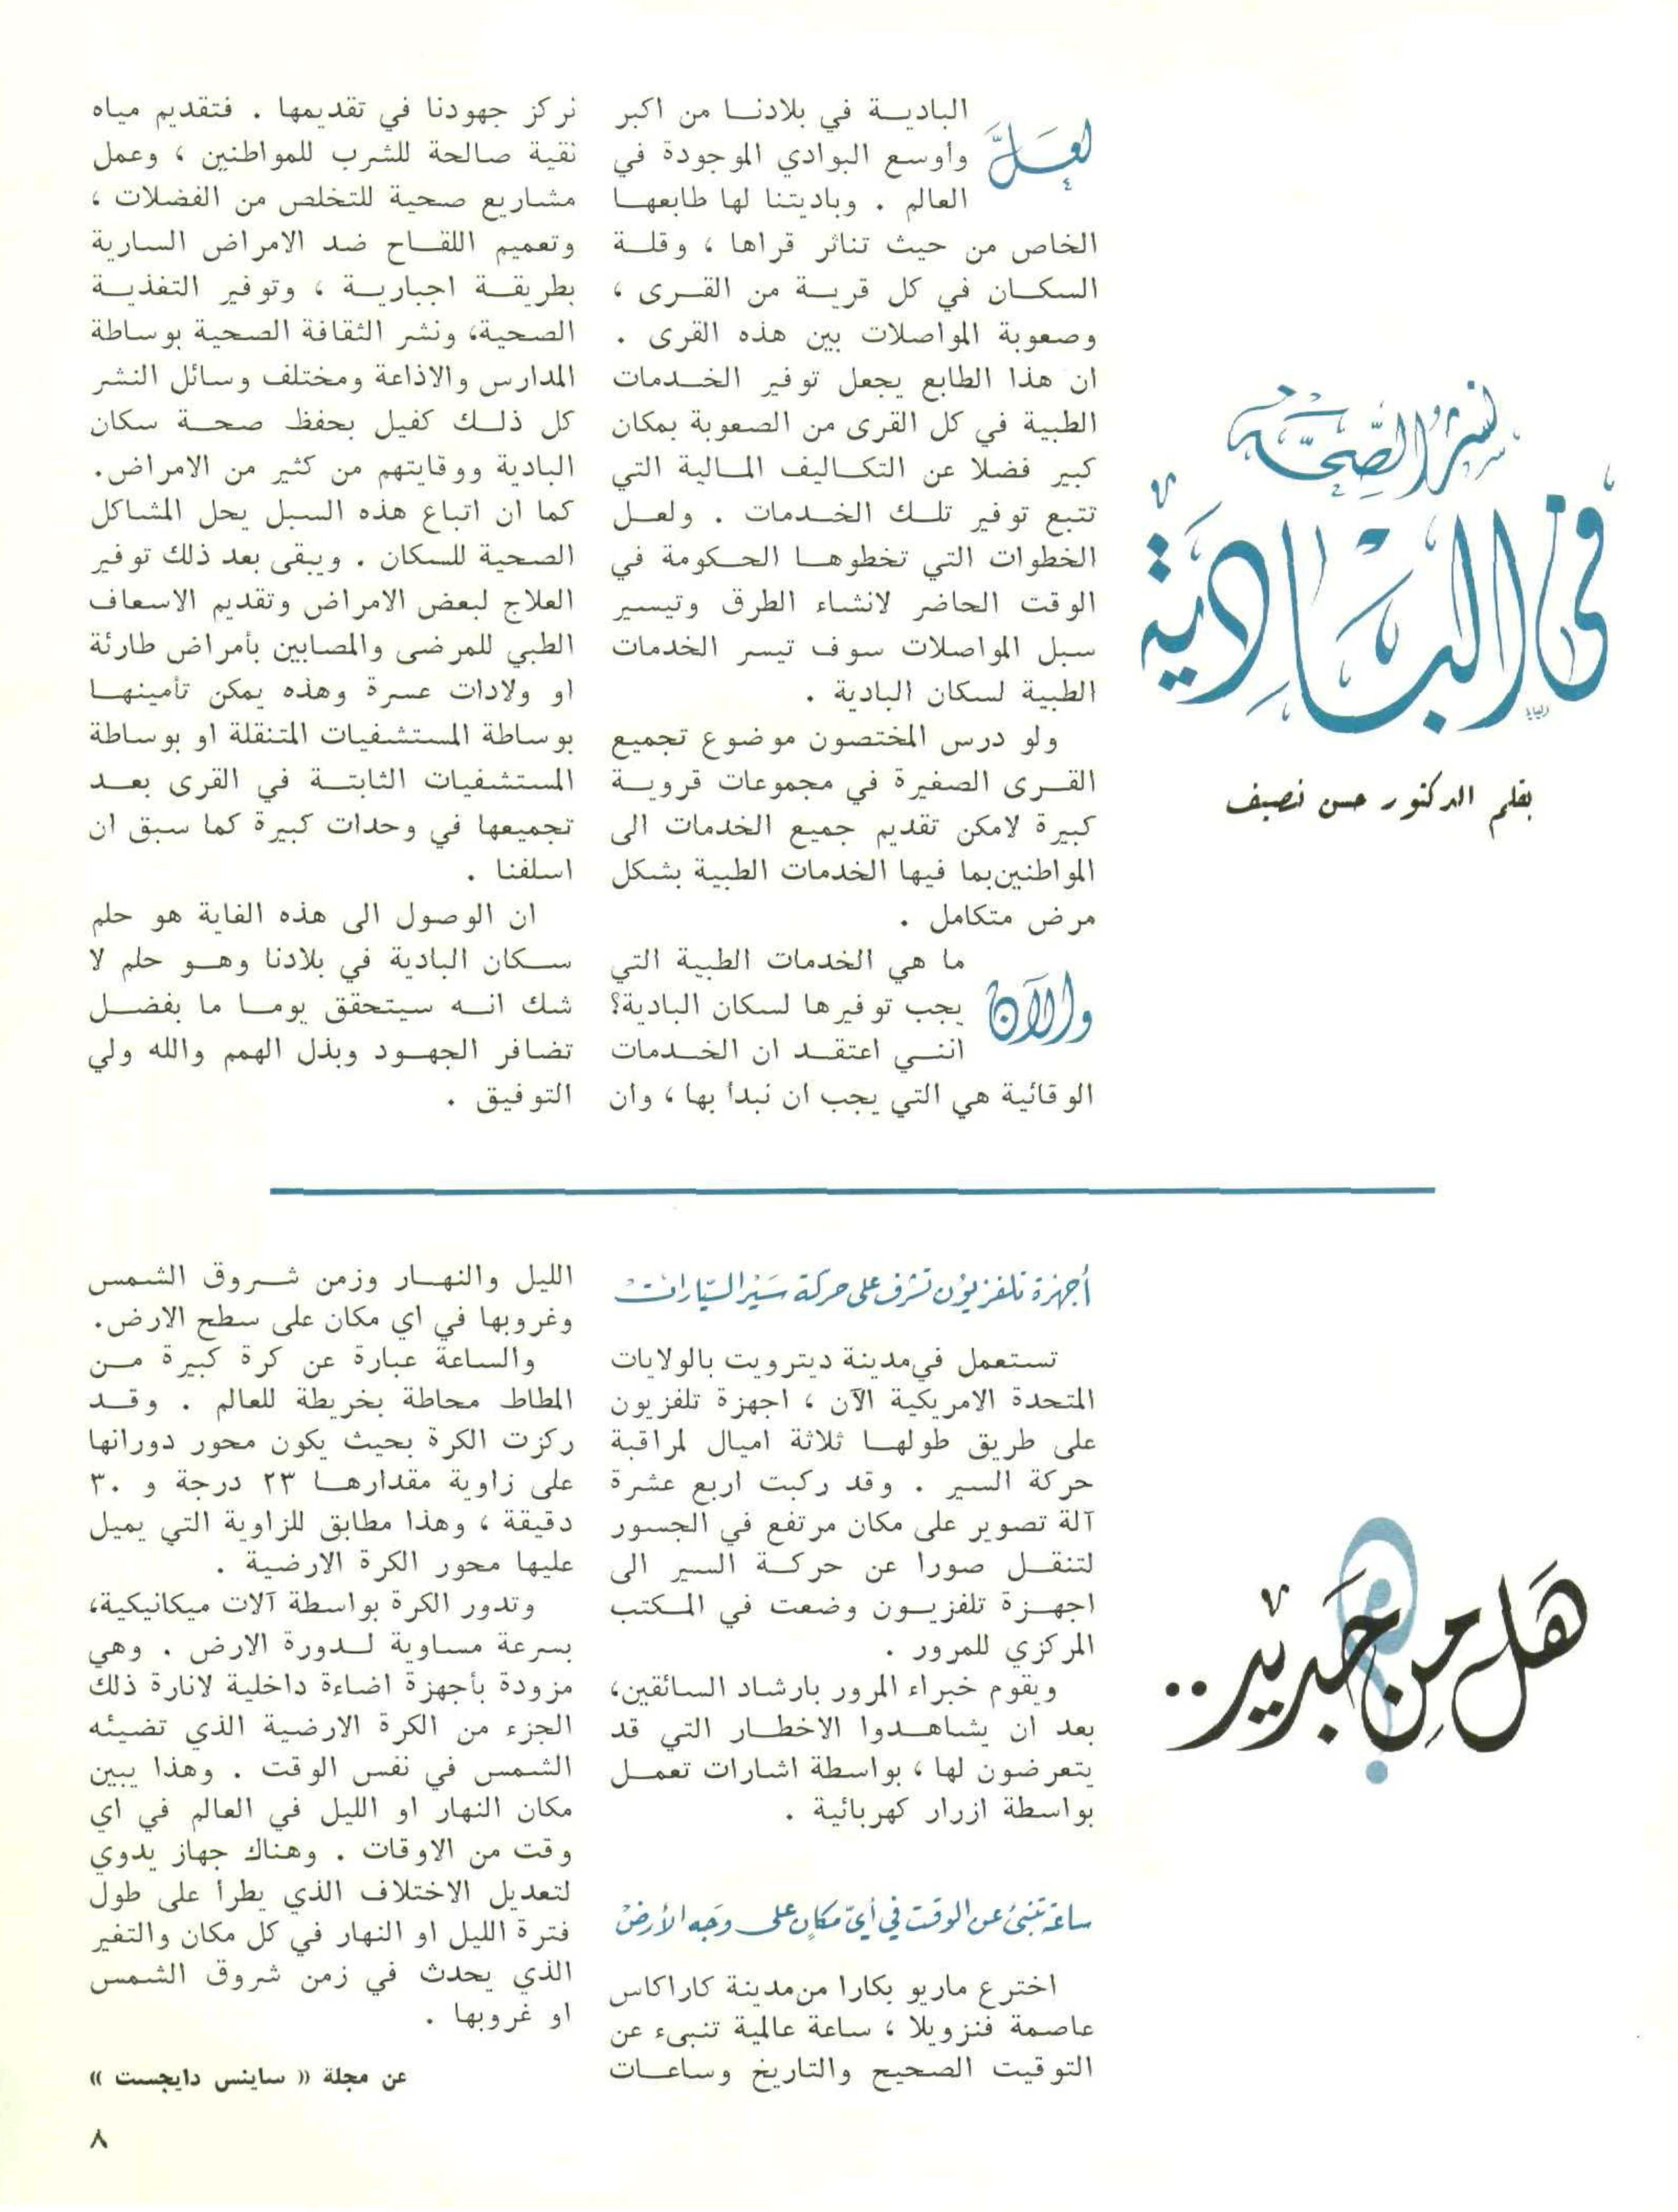 نشر الصحة
في البادية
بقلم الدكتور حسن نصيف
لعلّ البادية في بلادنا من اكبر
واوسع البوادي الموجودة في
العالم . وباديتنا لها طابعها
الخاص من حيث تناثر قراها ، وقلة
السكان في كل قرية من القرى ،
وصعوبة المواصلات بين هذه القرى .
ان هذا الطابع يجعل توفير الخدمات
الطبية في كل القرى من الصعوبة بمكان
كبير فضلا عن التكاليف المالية التي
تتبع توفير تلك الخدمات . ولعل
الخطوات التي تخطوها الحكومة في
الوقت الحاضر لانشاء الطرق وتيسير
سبل المواصلات سوف تيسر الخدمات
الطبية لسكان البادية .
ولو درس المختصون موضوع تجميع
القرى الصغيرة في مجموعات قروية
كبيرة لامكن تقديم جميع الخدمات الى
المواطنين بما فيها الخدمات الطبية بشكل
مرض متكامل .
والآن ما هي الخدمات الطبية التي
يجب توفيرها لسكان البادية؟
انني اعتقد ان الخدمات
الوقائية هي التي يجب ان نبدا بها ، وان
نركز جهودنا في تقديمها . فتقديم مياه
نقية صالحة للشرب للمواطنين ، وعمل
مشاريع صحية للتخلص من الفضلات ،
وتعميم اللقاح ضد الامراض السارية
بطريقة اجبارية ، وتوفير التغذية
الصحية، ونشر الثقافة الصحية بوساطة
المدارس والاذاعة ومختلف وسائل النشر
كل ذلك كفيل بحفظ صحة سكان
البادية ووقايتهم من كثير من الامراض.
كما ان اتباع هذه السبل يحل المشاكل
الصحية للسكان . ويبقى بعد ذلك توفير
العلاج لبعض الامراض وتقديم الاسعاف
الطبي للمرضى والمصابين بأمراض طارئة
او ولادات عسرة وهذه يمكن تأمينها
بوساطة المستشفيات المتنقلة او بوساطة
المستشفيات الثابتة في القرى بعد
تجميعها في وحدات كبيرة كما سبق ان
اسلفنا .
ان الوصول الى هذه الغاية هو حلم
سكان البادية في بلادنا وهو حلم لا
شك انه سيتحقق يوما ما بفضل
تضافر الجهود وبذل الهمم والله ولي
التوفيق .
هل من جديد..
أجهزة تلفزيون تشرف على حركة سير السيّارات
تستعمل في مدينة ديترويت بالولايات
المتحدة الامريكية الآن ، اجهزة تلفزيون
على طريق طولها ثلاثة اميال لمراقبة
حركة السير . وقد ركبت اربع عشرة
آلة تصوير على مكان مرتفع في الجسور
لتنقل صورا عن حركة السير الى
اجهزة تلفزيون وضعت في المكتب
المركزي للمرور .
ويقوم خبراء المرور بارشاد السائقين،
بعد ان يشاهدوا الاخطار التي قد
يتعرضون لها ، بواسطة اشارات تعمل
بواسطة ازرار كهربائية .
ساعة تنبئ عن الوقت في أيّ مكانٍ على وجه الأرض
اخترع ماريو بكارا من مدينة كاراكاس
عاصمة فنزويلا ، ساعة عالمية تنبىء عن
التوقيت الصحيح والتاريخ وساعات
الليل والنهار وزمن شروق الشمس
وغروبها في اي مكان على سطح الارض.
والساعة عبارة عن كرة كبيرة من
المطاط محاطة بخريطة للعالم . وقد
ركزت الكرة بحيث يكون محور دورانها
على زاوية مقدارها ٢٣ درجة و ٣٠
دقيقة ، وهذا مطابق للزاوية التي يميل
عليها محور الكرة الارضية .
وتدور الكرة بواسطة آلات ميكانيكية،
بسرعة مساوية لدورة الارض . وهي
مزودة بأجهزة اضاءة داخلية لانارة ذلك
الجزء من الكرة الارضية الذي تضيئه
الشمس في نفس الوقت . وهذا يبين
مكان النهار او الليل في العالم في اي
وقت من الاوقات . وهناك جهاز يدوي
لتعديل الاختلاف الذي يطرأ على طول
فترة الليل او النهار في كل مكان والتغير
الذي يحدث في زمن شروق الشمس
او غروبها .
عن مجلة « ساينس دايجست »
٨